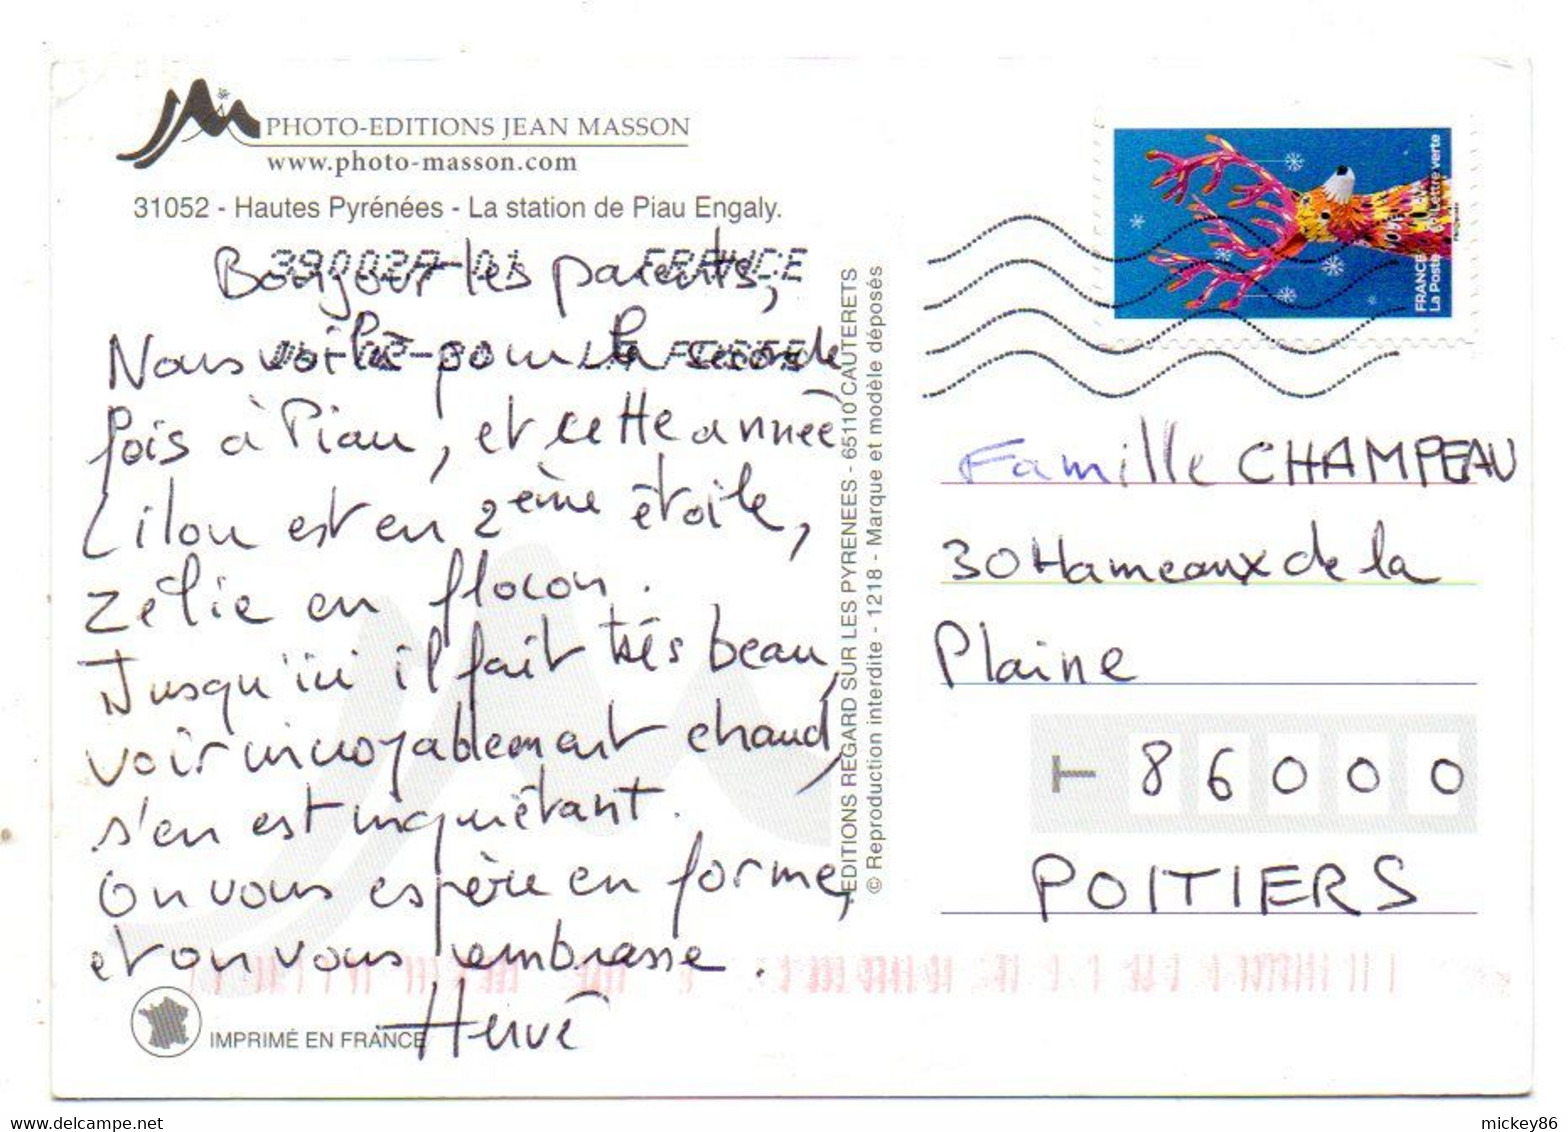 PHOTO-EDITIONS JEAN MASSON
www.photo-masson.com
31052 - Hautes Pyrénées - La station de Piau Engaly.
39002A-01 FRANCE
LA POSTE
Bonjour les parents,
Nous voilà pour la seconde
fois à Piau, et cette année
Lilou est en 2ème étoile,
Zélie en flocon.
Jusqu'ici il fait très beau,
voir incroyablement chaud,
s'en est inquiétant.
On vous espère en forme,
et on vous embrasse.
Hervé
IMPRIMÉ EN FRANCE
EDITIONS REGARD SUR LES PYRENEES - 65110 CAUTERETS
© Reproduction interdite - 1218 - Marque et modèle déposés
FRANCE
La Poste
Lettre verte
Famille CHAMPEAU
30 Hameaux de la
Plaine
T 86000
POITIERS
mickey86